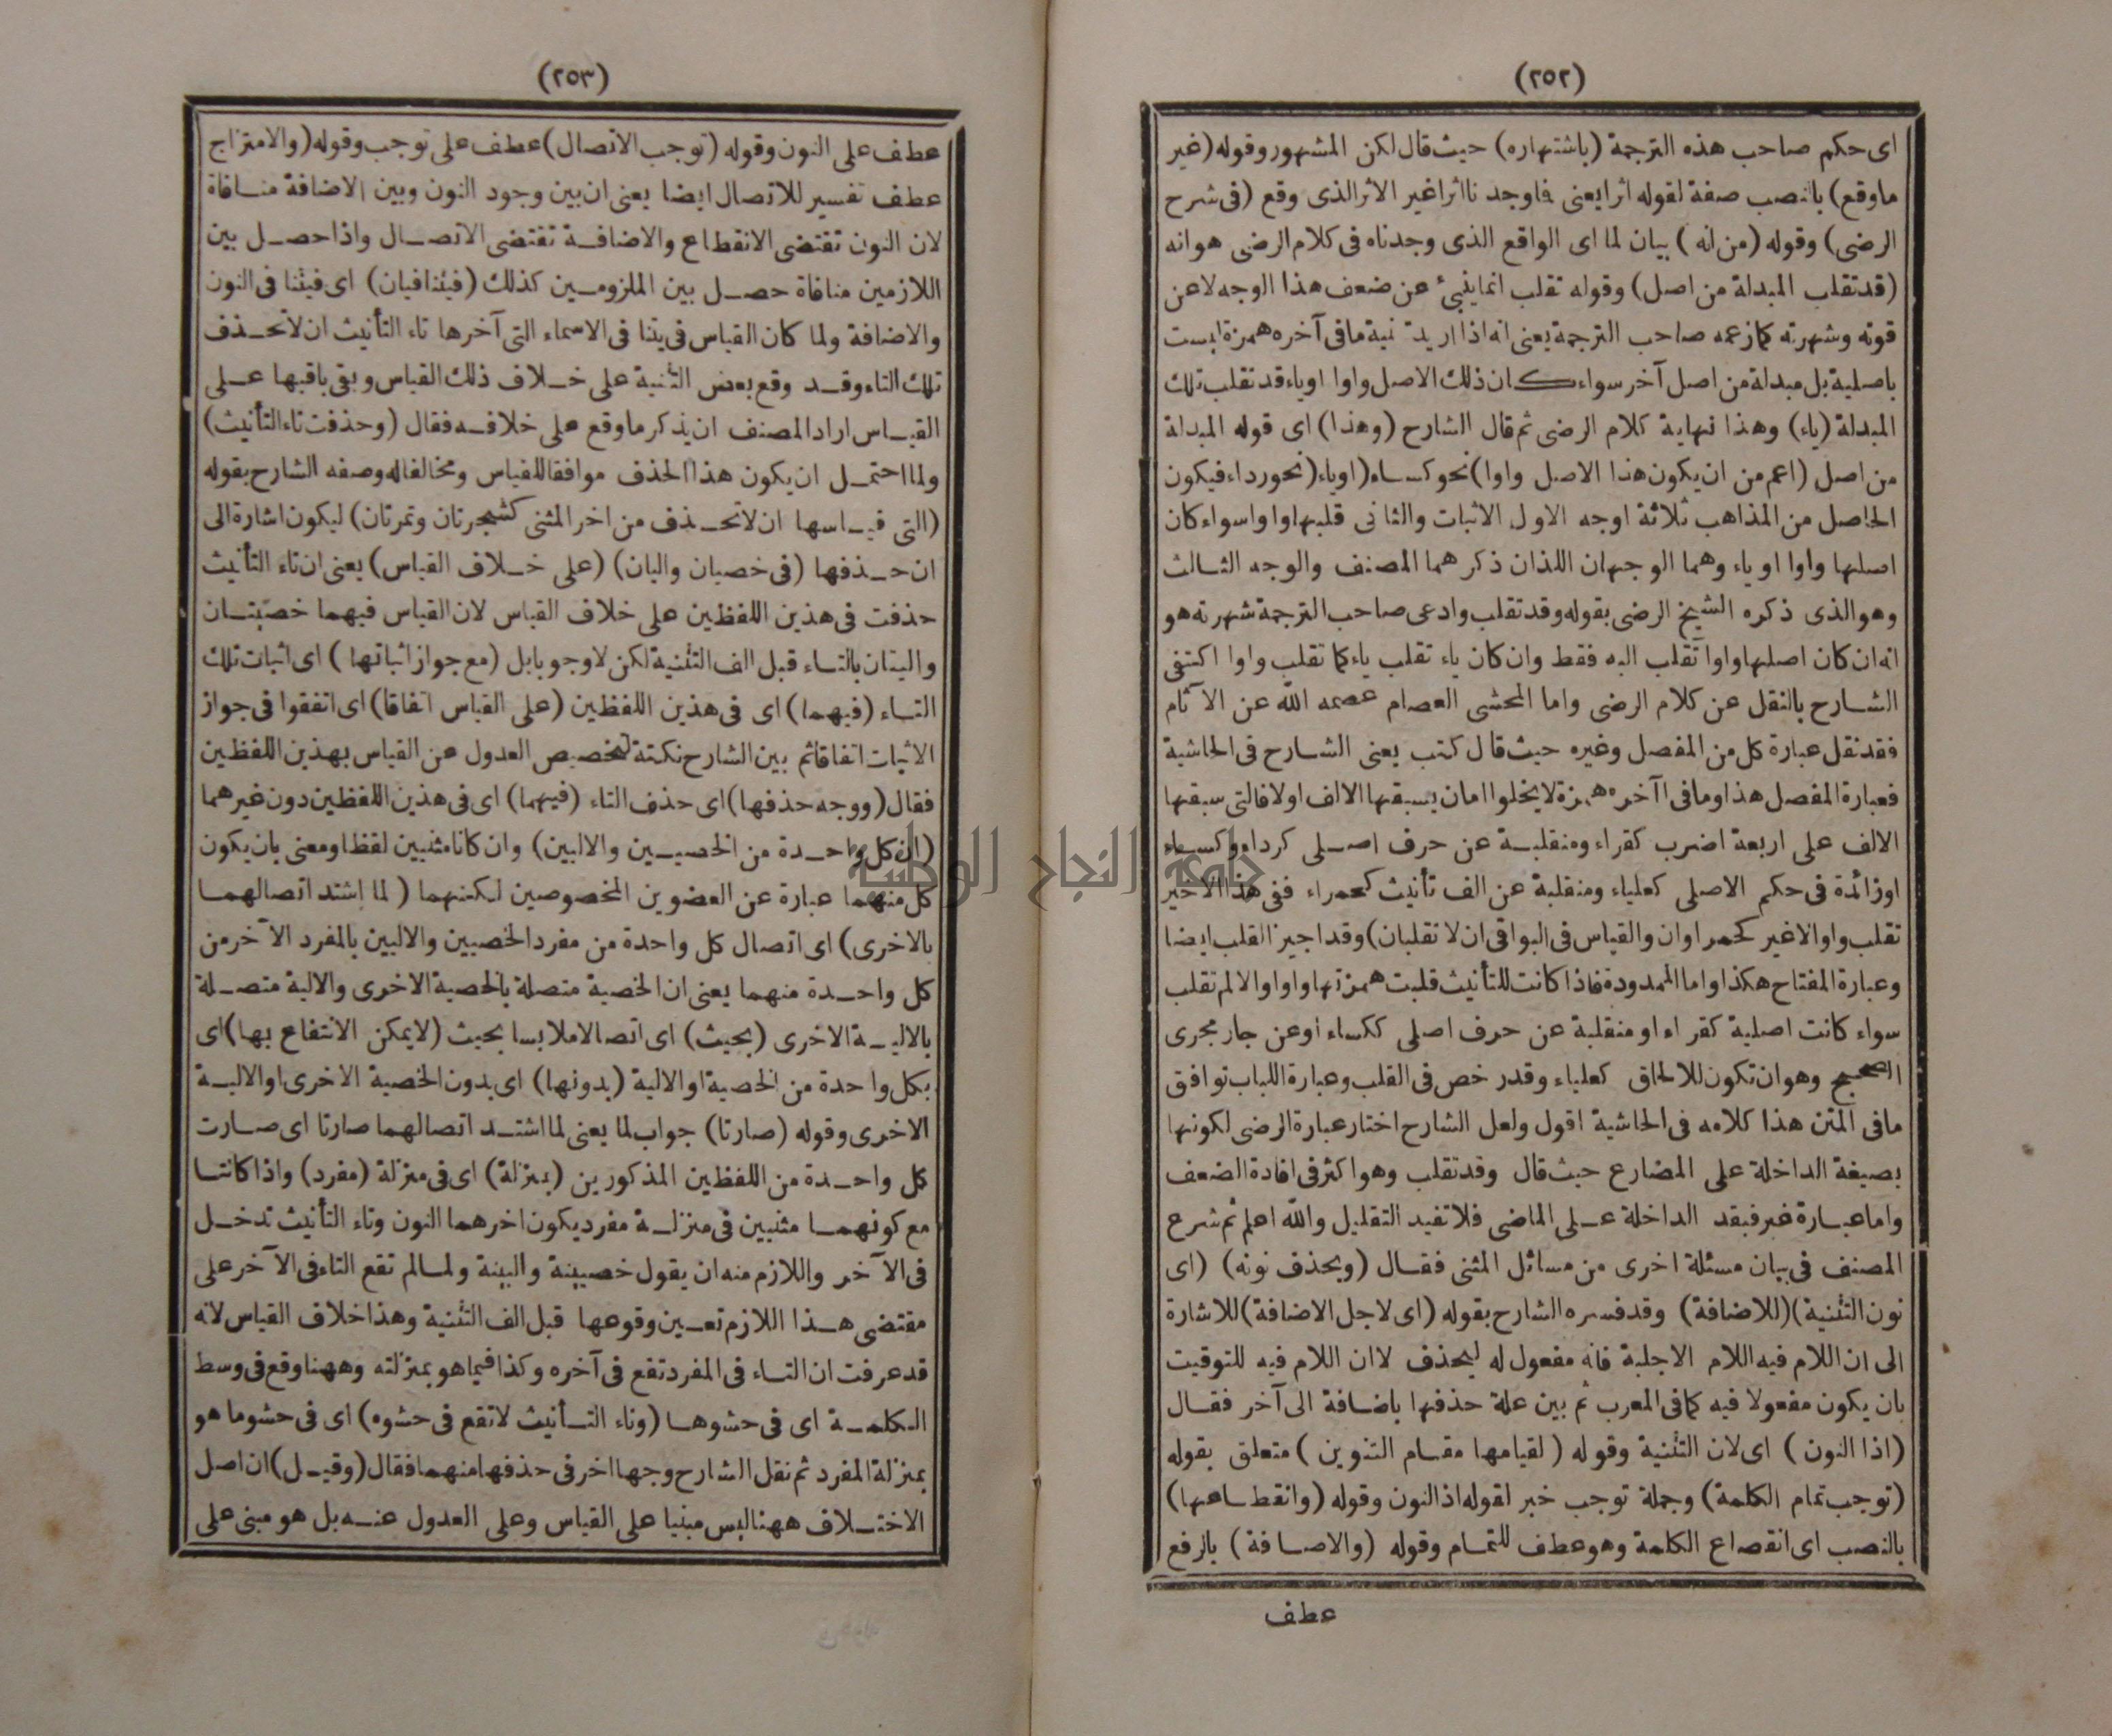 (٢٥٢)
اى حكم صاحب هذه الترجمة (باشتهاره) حيث قال لكن المشهور وقوله (غير
ما وقع) بالنصب صفة لقوله اثرا يعنى فاوجدنا اثرا غير الاثر الذى وقع (فى شرح
الرضى) وقوله (من انه) بيان لما اى الواقع الذى وجدناه فى كلام الرضى هو انه
(قد تقلب المبدلة من اصل) وقوله تقلب انما ينبىء عن ضعف هذا الوجه لا عن
قوته وشهرته كما زعمه صاحب الترجمة يعنى انه اذا اريد تثنية ما فى آخره همزة ليست
باصلية بل مبدلة من اصل آخر سواء كان ذلك الاصل واوا او ياء قد تقلب تلك
المبدلة (ياء) وهذا نهاية كلام الرضى ثم قال الشارح (وهذا) اى قوله المبدلة
من اصل (اعم من ان يكون هذا الاصل واوا) نحو كساء (او ياء) نحو رداء فيكون
الحاصل من المذاهب ثلاثة اوجه الاول الاثبات والثانى قلبها واوا سواء كان
اصلها واوا او ياء وهما الوجهان اللذان ذكرهما المصنف والوجه الثالث
وهو الذى ذكره الشيخ الرضى بقوله وقد تقلب وادعى صاحب الترجمة شهرته هو
انه ان كان اصلها واوا تقلب اليه فقط وان كان ياء تقلب ياء كما تقلب واوا اكتفى
الشارح بالنقل عن كلام الرضى واما المحشى العصام عصمه الله عن الآثام
فقد نقل عبارة كل من المفصل وغيره حيث قال كتب يعنى الشارح فى الحاشية
فعبارة المفصل هذا وما فى آخره همزة لا يخلوا امان يسبقها الالف او لا فالتى سبقها
الالف على اربعة اضرب كقراء ومنقلبة عن حرف اصلى كرداء وكساء
او زائدة فى حكم الاصلى كعلباء ومنقلبة عن الف تأنيث كحمراء ففى هذا الاخير
تقلب واوا لا غير كحمراوان والقياس فى البواقى ان لا تقلبان) وقد اجيز القلب ايضا
وعبارة المفتاح هكذا واما الممدودة فاذا كانت للتأنيث قلبت همزتها واوا والا لم تقلب
سواء كانت اصلية كقراء او منقلبة عن حرف اصلى ككساء او عن جار مجرى
الصحيح وهو ان تكون للالحاق كعلباء وقد رخص فى القلب وعبارة اللباب توافق
ما فى المتن هذا كلامه فى الحاشية اقول ولعل الشارح اختار عبارة الرضى لكونها
بصيغة الداخلة على المضارع حيث قال وقد تقلب وهو اكثر فى افادة الضعف
واما عبارة غيره فبقد الداخلة على الماضى فلا تفيد التقليل والله اعلم ثم شرع
المصنف فى بيان مسئلة اخرى من مسائل المثنى فقال (ويحذف نونه) (اى
نون التثنية) (للاضافة) وقد فسره الشارح بقوله (اى لاجل الاضافة) للاشارة
الى ان اللام فيه اللام الاجلية فانه مفعول له ليحذف لا ان اللام فيه للتوقيت
بان يكون مفعولا فيه كما فى المعرب ثم بين علة حذفها باضافة الى آخر فقال
(اذا النون) اى لان التثنية وقوله (لقيامها مقام التنوين) متعلق بقوله
(توجب تمام الكلمة) وجملة توجب خبر لقوله اذ النون وقوله (وانقطاعها)
بالنصب اى انقصاع الكلمة وهو عطف للتمام وقوله (والاضافة) بالرفع
عطف
(٢٥٣)
عطف على النون وقوله (توجب الاتصال) عطف على توجب وقوله (والامتزاج
عطف تفسير للاتصال ايضا يعنى ان بين وجود النون وبين الاضافة منافاة
لان النون تقتضى الانقطاع والاضافة تقتضى الاتصال واذا حصل بين
اللازمين منافاة حصل بين الملزومين كذلك (فيتنافيان) اى فيتنافى النون
والاضافة ولما كان القياس فى بيتنا فى الاسماء التى آخرها تاء التأنيث ان لا تحذف
تلك التاء وقد وقع بعض التثنية على خلاف ذلك القياس وبقى باقيها على
القياس اراد المصنف ان يذكر ما وقع على خلافه فقال (وحذفت تاء التأنيث)
ولما احتمل ان يكون هذا الحذف موافقا للقياس ومخالفا له وصفه الشارح بقوله
(التى قياسها ان لا تحذف من اخر المثنى كشجرتان وتمرتان) ليكون اشارة الى
ان حذفها (فى خصيان واليان) (على خلاف القياس) يعنى ان تاء التأنيث
حذفت فى هذين اللفظين على خلاف القياس لان القياس فيهما خصيتان
واليتان بالتاء قبل الف التثنية لكن لا وجوبا بل (مع جواز اثباتها) اى اثبات تلك
التاء (فيهما) اى فى هذين اللفظين (على القياس اتفاقا) اى اتفقوا فى جواز
الاثبات اتفاقا ثم بين الشارح نكتة لتخصيص العدول عن القياس بهذين اللفظين
فقال (ووجه حذفها) اى حذف التاء (فيهما) اى فى هذين اللفظين دون غيرهما
(ان كل واحدة من الخصيين والاليين) وان كانا مثنيين لفظا ومعنى بان يكون
كل منهما عبارة عن العضوين المخصوصين لكنهما (لما اشتد اتصالهما
بالاخرى) اى اتصال كل واحدة من مفرد الخصيين والاليين بالمفرد الآخر من
كل واحدة منهما يعنى ان الخصية متصلة بالخصية الاخرى والالية متصلة
بالالية الاخرى (بحيث) اى اتصالا ملابسا بحيث (لا يمكن الانتفاع بها) اى
بكل واحدة من الخصية او الالية (بدونها) اى بدون الخصية الاخرى او الالية
الاخرى وقوله (صارتا) جواب لما يعنى لما اشتد اتصالهما صارتا اى صارت
كل واحدة من اللفظين المذكورين (بمنزلة) اى فى منزلة (مفرد) واذا كانتا
مع كونهما مثنيين فى منزلة مفرد يكون اخرهما النون وتاء التأنيث تدخل
فى الآخر واللازم منه ان يقول خصيينة واليينة ولما لم تقع التاء فى الآخر على
مقتضى هذا اللازم تعين وقوعها قبل الف التثنية وهذا خلاف القياس لانه
قد عرفت ان التاء فى المفرد تقع فى آخره وكذا فيما هو بمنزلته وههنا وقع فى وسط
الكلمة اى فى حشوها (وتاء التأنيث لا تقع فى حشوه) اى فى حشو ما هو
بمنزلة المفرد ثم نقل الشارح وجها اخر فى حذفها منهما فقال (وقيل) ان اصل
الاختلاف ههنا ليس مبنيا على القياس وعلى العدول عنه بل هو مبنى على
جامعة النجاح الوطنية